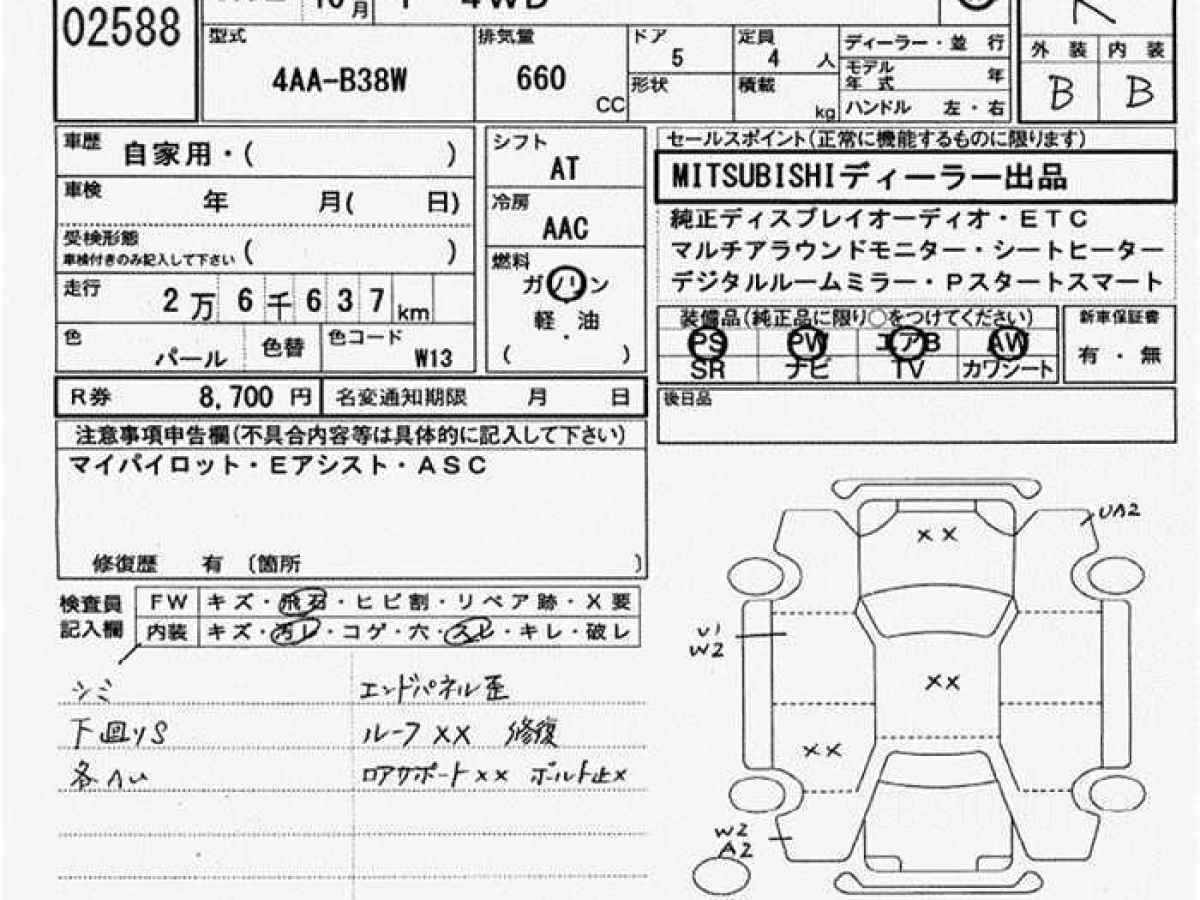 02588
10月
4WD
型式
4AA-B38W
排気量
660
CC
ドア
5
形状
定員
4 人
積載
kg
ディーラー・並 行
モデル
年 式 年
ハンドル 左・右
R
外 装 内 装
B B
車歴
自家用・( )
車検
年 月( 日)
受検形態
車検付きのみ記入して下さい ( )
走行
2万6千637km
色
パール
色替
色コード
W13
シフト
AT
冷房
AAC
燃料
ガソリン
軽 油
・
( )
セールスポイント(正常に機能するものに限ります)
MITSUBISHIディーラー出品
純正ディスプレイオーディオ・ETC
マルチアラウンドモニター・シートヒーター
デジタルルームミラー・Pスタートスマート
装備品(純正品に限り○をつけてください)
PS PW エアB AW
SR ナビ TV カワシート
新車保証書
有・無
R券 8,700 円
名変通知期限 月 日
後日品
注意事項申告欄(不具合内容等は具体的に記入して下さい)
マイパイロット・Eアシスト・ASC
修復歴 有 〔箇所 〕
検査員
記入欄
FW キズ・飛石・ヒビ割・リペア跡・X要
内装 キズ・汚レ・コゲ・穴・スレ・キレ・破レ
シミ
下回りS
各ヘコ
エンドパネル歪
ルーフ XX 修復
ロアサポート XX ボルト止X
XX
UA2
U1
W2
XX
XX
W2
A2